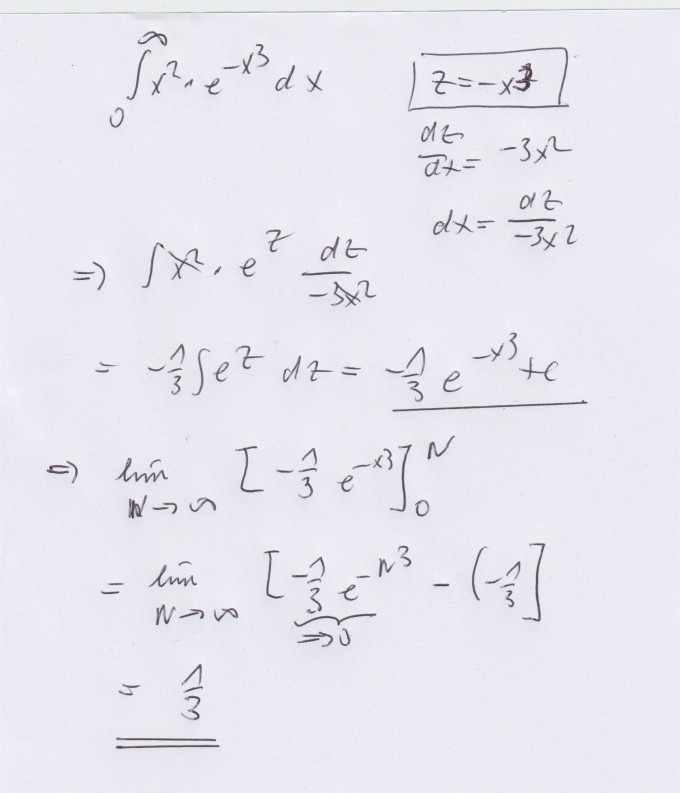 ∞
∫ x² · e^(-x³) dx
0
z = -x³
dz/dx = -3x²
dx = dz/(-3x²)
=> ∫ x² · e^z dz/(-3x²)
= -1/3 ∫ e^z dz = -1/3 e^(-x³) + c
=> lim N→∞ [ -1/3 e^(-x³) ]₀^N
= lim N→∞ [ -1/3 e^(-N³) - (-1/3 ]
=>0
= 1/3